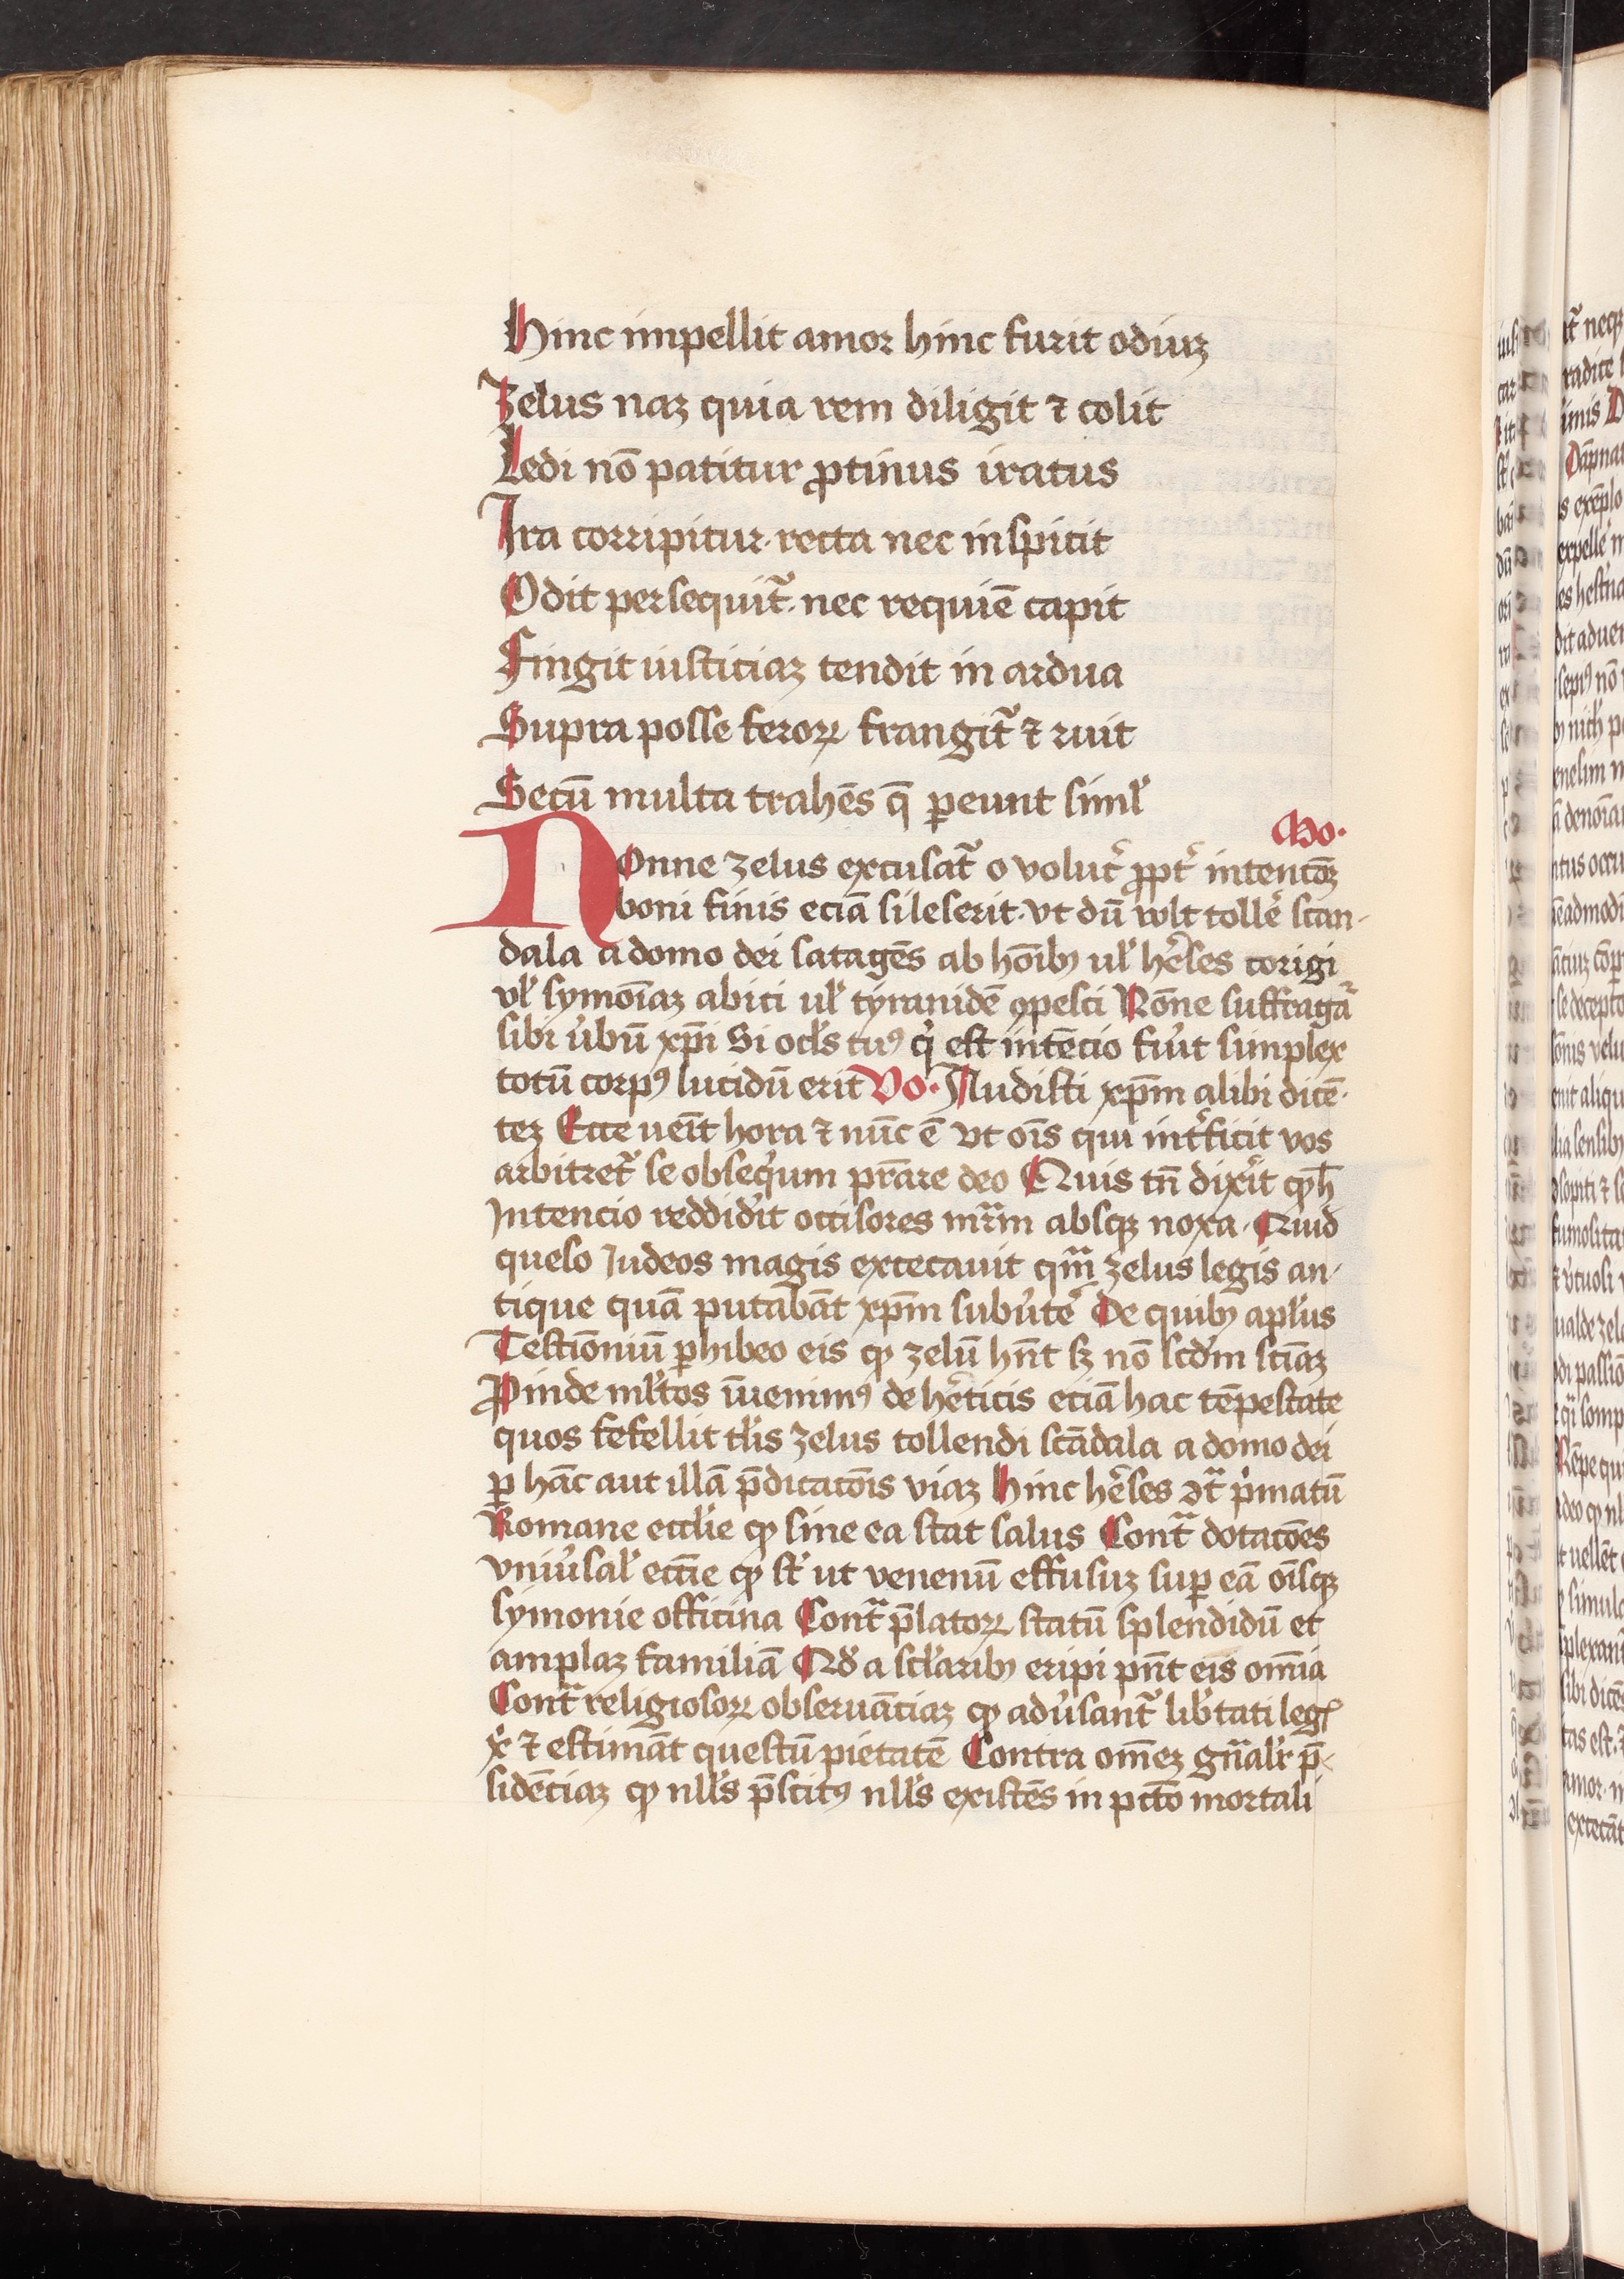 Hinc impellit amor hinc furit odiuꝫ
Zelus naꝫ quia rem diligit ⁊ colit
Ledi nō patitur ꝓtinus iratus
Ira corripitur· recta nec inspicit
Odit persequit᷑· nec requiē capit
Fingit iusticiaꝫ tendit in ardua
Supra posse feroꝝ frangit᷑ ⁊ ruit
Secū multa trahēs q̄ ꝑeunt simĺ
Mo·
Nonne zelus excusat᷑ o volut̾ ꝓpt̾ intenc̄oꝫ
boni finis eciā si leserit· vt dū wlt toll̾e scan-
dala a domo dei satagēs ab hōībꝫ uĺ h̾eses corigi
vĺ symoīaꝫ abici uĺ tyranidē ꝯpesci Nōne suffragat᷑
sibi u̾bū xp̄i Si ocĺs tuꝰ q̇ est intēcio fiu̾t simplex
totū corpꝰ lucidū erit Vo· Audisti xp̄m alibi dicē-
teꝫ Ecce ueīt hora ⁊ nūc ē vt oīs qui int̾ficit vos
arbitret᷑ se obseq̇um pr̄are deo Quis tn̄ dix̾it ꝙ h̄
Intencio reddid̾it occisores mr̄m absqꝫ noxa· Quid
queso Iudeos magis excecauit qm̄ zelus legis an-
tique quā putabāt xp̄m subu̾te̾ De quibꝫ apĺus
Testīoniū ꝑhibeo eis ꝙ zelū hn̄t sꝫ nō scd̄m scīaꝫ
Proinde mĺtos īuenimꝰ de h̾eticis eciā hac tēpestate
quos fefellit tĺis zelus tollendi scādala a domo dei
ꝑ hāc aut illā p̄dicac̄ōis viaꝫ Hinc h̾eses ꝯt᷑ ṗmatū
Romane eccĺie ꝙ sine ea stat salus Cont᷑ dotac̄ōes
vniu̾saĺ ecc̄ie ꝙ st̄ ut venenū effusuꝫ suꝑ eā oīsqꝫ
symonie officina Cont᷑ p̄latoꝝ statū splendidū et
amplaꝫ familiā Qd̾ a scĺaribꝫ eripi pn̄t eis om̄ia
Cont᷑ religiosoꝝ obseruāciaꝫ ꝙ adu̾sant᷑ lib̾tati legꝭ
x̾ ⁊ estimāt questū pietatē Contra om̄eꝫ gn̄aĺr p̄-
sidēciaꝫ ꝙ nlĺs p̄scitꝰ nlĺs existēs in pctō mortali